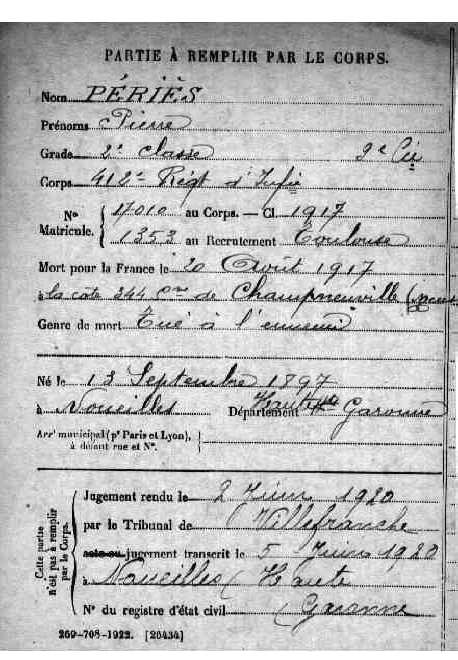 PARTIE À REMPLIR PAR LE CORPS.
Nom PÉRIÈS
Prénoms Pierre
Grade 2e classe 9e Cie
Corps 412e Régt d'Infie
Nos Matricule. { 17010 au Corps. — Cl. 1917
1353 au Recrutement Toulouse
Mort pour la France le 20 Août 1917
à la cote 344 Cne de Champneuville (Meuse
Genre de mort Tué à l'ennemi
Né le 13 Septembre 1897
à Noueilles Département Haute Garonne
Arrt municipal (pr Paris et Lyon),
à défaut rue et No.
Cette partie n'est pas à remplir par le Corps.
Jugement rendu le 2 Juin 1920
par le Tribunal de Villefranche
acte ou jugement transcrit le 5 Juin 1920
à Noueilles (Haute
No du registre d'état civil Garonne
269-708-1922. [26434]